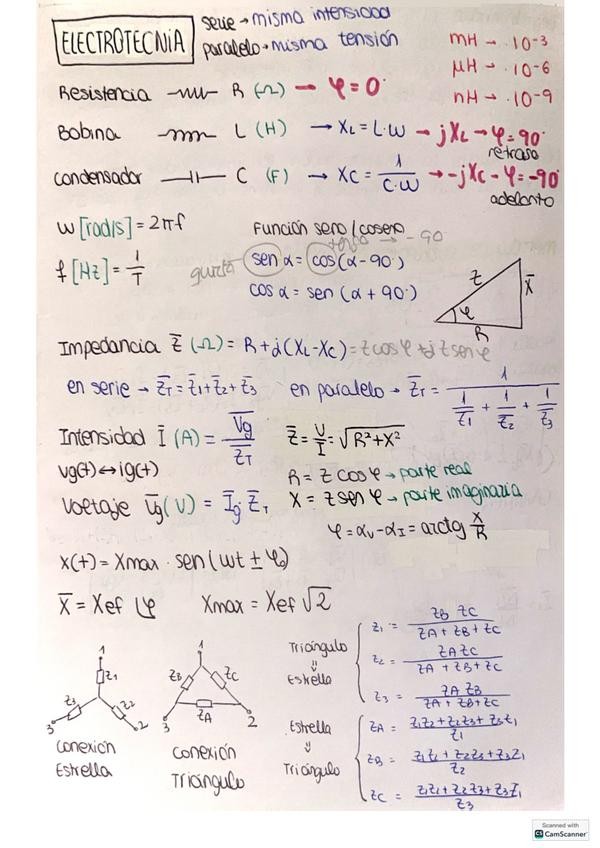 ELECTROTECNIA
serie → misma intensidad
paralelo → misma tensión
mH → ·10⁻³
μH → ·10⁻⁶
nH → ·10⁻⁹
Resistencia R (Ω) → φ = 0°
Bobina L (H) → XL = L·W → jXL → φ = 90° retraso
Condensador C (F) → XC = 1/(C·W) → -jXC - φ = -90° adelanto
W [rad/s] = 2πf
f [Hz] = 1/T
Función seno/coseno
→ -90
sen α = cos(α - 90°)
cos α = sen (α + 90°)
Z X̄ φ R
Impedancia Z̄ (Ω) = R + j(XL - XC) = z cos φ + j z sen φ
en serie → Z̄T = Z̄1 + Z̄2 + Z̄3
en paralelo → Z̄T = 1/(1/Z̄1 + 1/Z̄2 + 1/Z̄3)
Intensidad Ī (A) = V̄g/Z̄T
Z̄ = V/I = √(R² + X²)
vg(t) ↔ ig(t)
R = z cos φ → parte real
X = z sen φ → parte imaginaria
Voltaje V̄g (V) = Īg · Z̄T
φ = αV - αI = arctg X/R
X(t) = Xmax · sen(wt ± φ)
X̄ = Xef ∠φ
Xmax = Xef √2
1 Z1 Z3 Z2 3 2
Conexión
Estrella
1 ZB ZC ZA 3 2
Conexión
Triángulo
Triángulo
⇓
Estrella
Z1 = ZB ZC/(ZA + ZB + ZC)
Z2 = ZA ZC/(ZA + ZB + ZC)
Z3 = ZA ZB/(ZA + ZB + ZC)
Estrella
⇓
Triángulo
ZA = (Z1Z2 + Z2Z3 + Z3Z1)/Z1
ZB = (Z1Z1 + Z2Z3 + Z3Z1)/Z2
ZC = (Z1Z1 + Z2Z3 + Z3Z1)/Z3
Scanned with
CS CamScanner